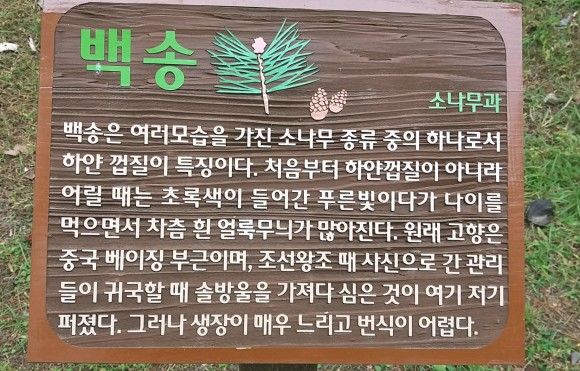 백송
소나무과
백송은 여러모습을 가진 소나무 종류 중의 하나로서
하얀 껍질이 특징이다. 처음부터 하얀껍질이 아니라
어릴 때는 초록색이 들어간 푸른빛이다가 나이를
먹으면서 차츰 흰 얼룩무늬가 많아진다. 원래 고향은
중국 베이징 부근이며, 조선왕조 때 사신으로 간 관리
들이 귀국할 때 솔방울을 가져다 심은 것이 여기 저기
퍼졌다. 그러나 생장이 매우 느리고 번식이 어렵다.